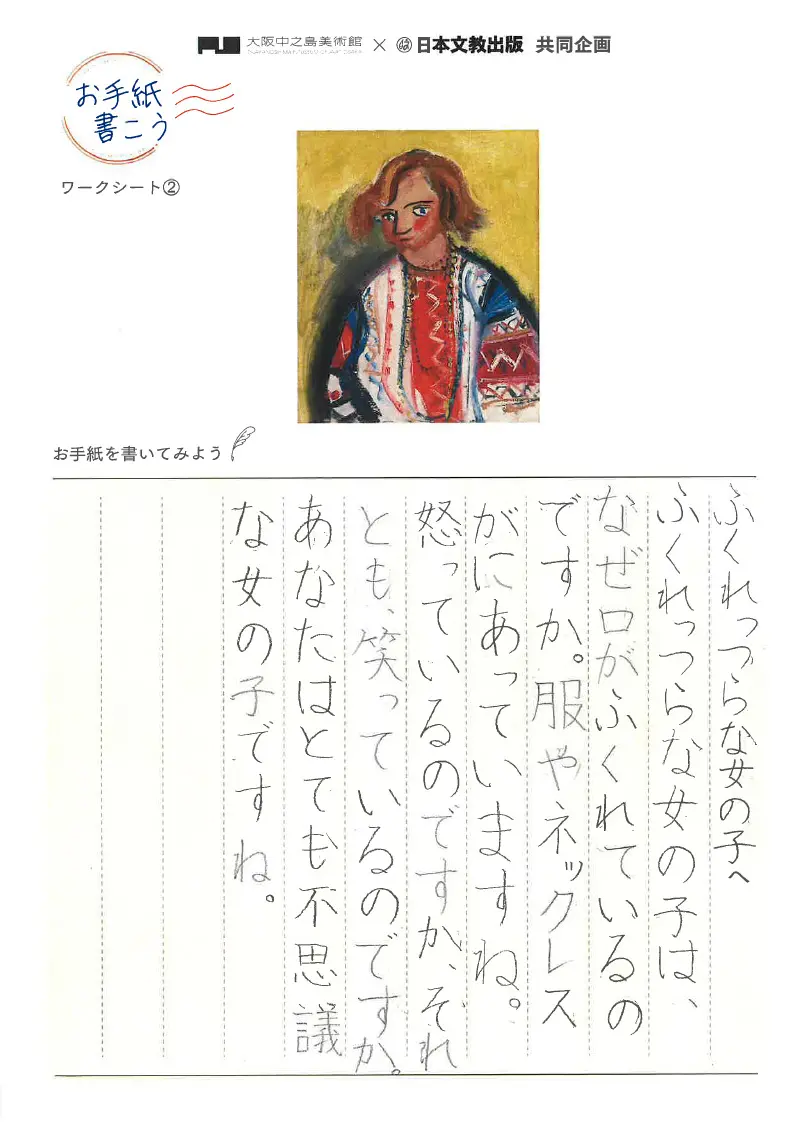 大阪中之島美術館 × 日本文教出版 共同企画
お手紙
書こう
ワークシート②
お手紙を書いてみよう
ふくれっづらな女の子へ
ふくれっつらな女の子は、
なぜ口がふくれているの
ですか。服やネックレス
がにあっていますね。
怒っているのですか、それ
とも、笑っているのですか。
あなたはとても不思議
な女の子ですね。